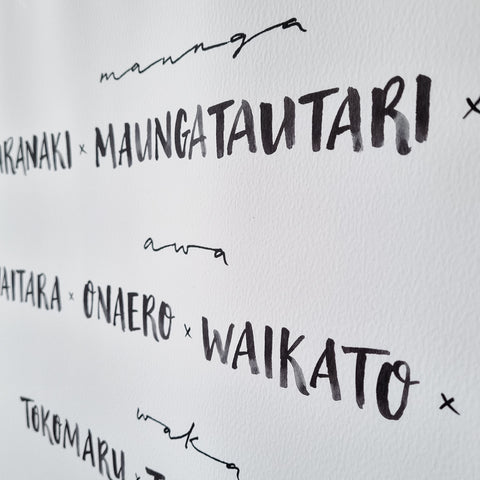 maunga
ARANAKI × MAUNGATAUTARI ×
awa
AITARA × ONAERO × WAIKATO ×
waka
TOKOMARU × T